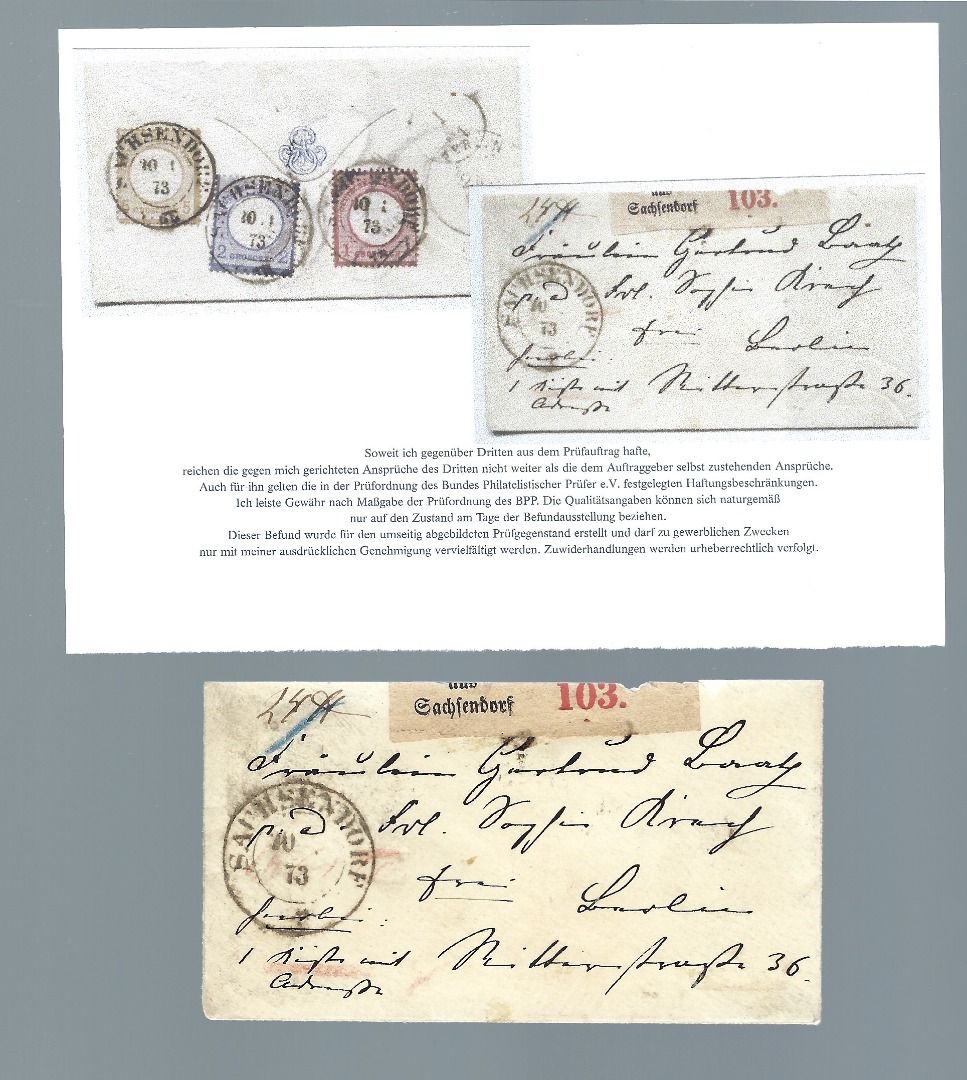 SACHSENDORF
10 1
73
5
SACHSENDORF
10 1
73
2 GROSCHEN
SACHSENDORF
10 1
73
1
Sachsendorf 103.
Fräulein Gertrud Baatz
p. ad Frl. Sophie Krach
SACHSENDORF
10
73
frei
Berlin
1 Kiste mit Ritterstraße 36.
Adresse
Soweit ich gegenüber Dritten aus dem Prüfauftrag hafte,
reichen die gegen mich gerichteten Ansprüche des Dritten nicht weiter als die dem Auftraggeber selbst zustehenden Ansprüche.
Auch für ihn gelten die in der Prüfordnung des Bundes Philatelistischer Prüfer e.V. festgelegten Haftungsbeschränkungen.
Ich leiste Gewähr nach Maßgabe der Prüfordnung des BPP. Die Qualitätsangaben können sich naturgemäß
nur auf den Zustand am Tage der Befundausstellung beziehen.
Dieser Befund wurde für den umseitig abgebildeten Prüfgegenstand erstellt und darf zu gewerblichen Zwecken
nur mit meiner ausdrücklichen Genehmigung vervielfältigt werden. Zuwiderhandlungen werden urheberrechtlich verfolgt.
Sachsendorf 103.
Fräulein Gertrud Baatz
p. ad Frl. Sophie Krach
SACHSENDORF
10
73
frei
Berlin
1 Kiste mit Ritterstraße 36.
Adresse